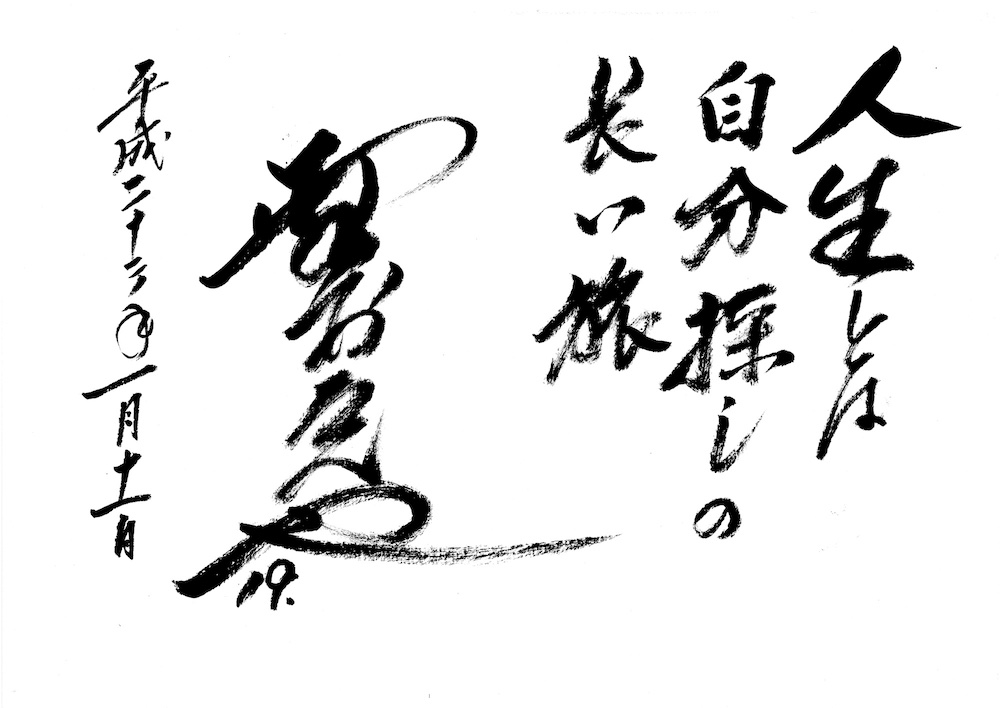 人生とは
自分探しの
長い旅
19.
平成二十二年一月十一日